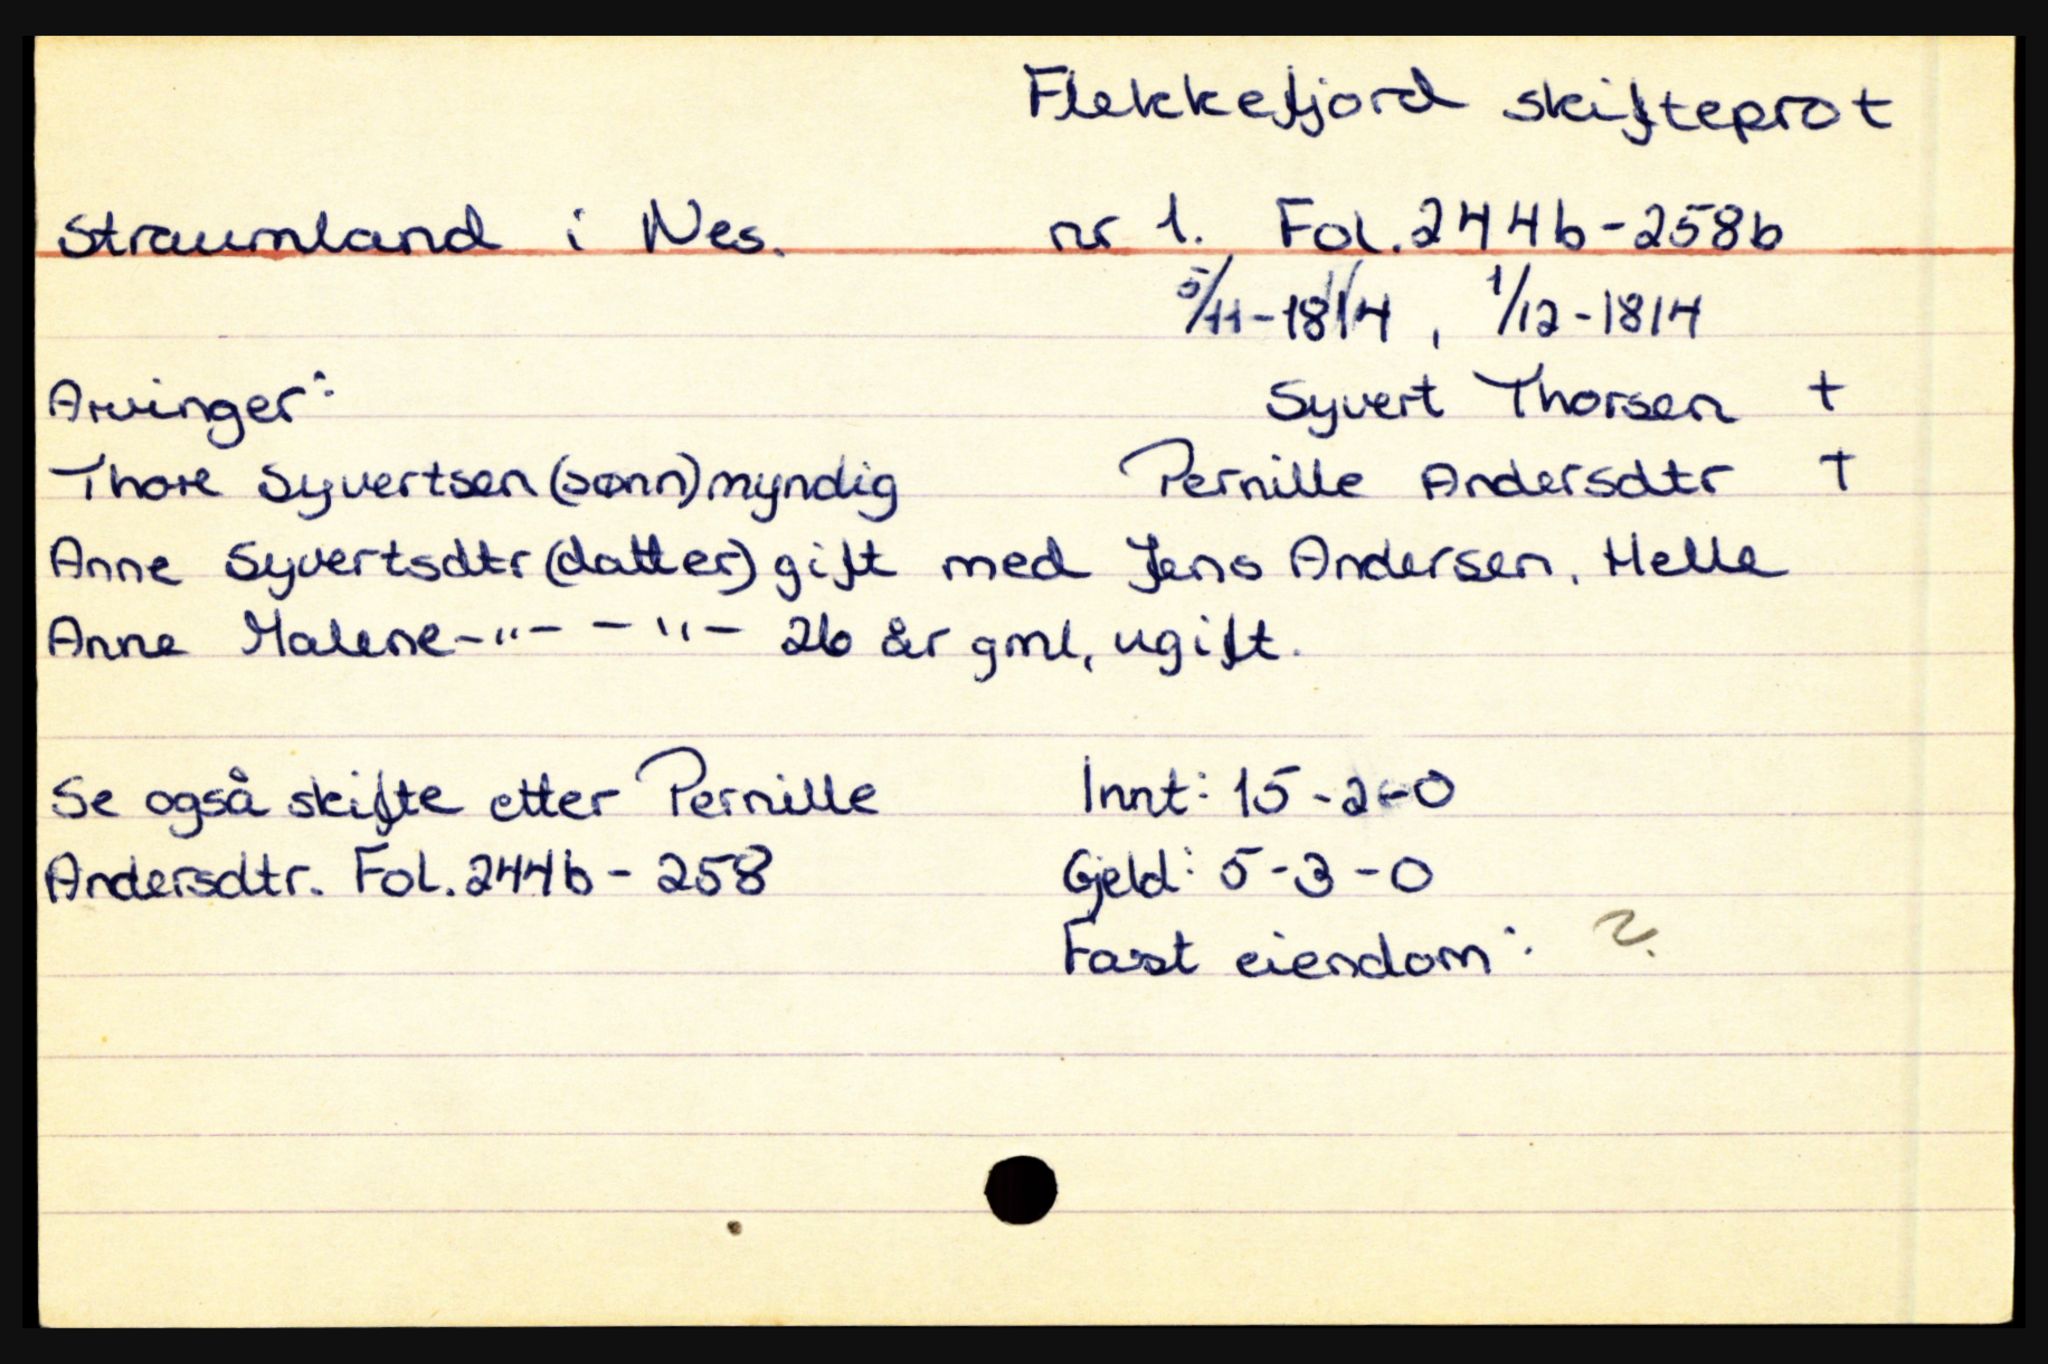 Flekkefjord skifteprot
Straumland i Nes. nr 1. Fol. 244b-258b
5/11-1814, 1/12-1814
Arvinger: Syvert Thorsen +
Thore Syvertsen (sønn) myndig Pernille Andersdtr +
Anne Syvertsdtr (datter) gift med Jens Andersen, Helle
Anne Malene -"- -"- 26 år gml, ugift.
Se også skifte etter Pernille Innt: 15-2-0
Andersdtr. Fol. 244b-258 Gjeld: 5-3-0
Fast eiendom: ?